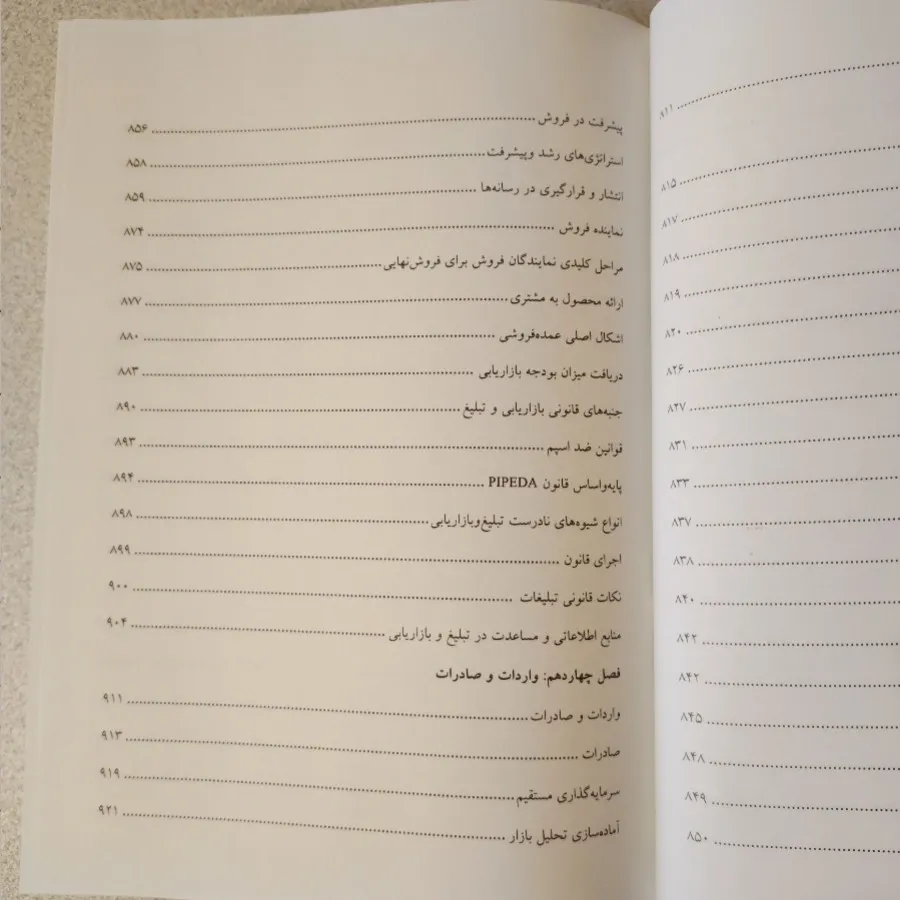 ۸۱۱
۸۱۵
۸۱۷
۸۱۸
۸۱۹
۸۲۰
۸۲۶
۸۲۷
۸۳۱
۸۳۳
۸۳۷
۸۳۸
۸۴۰
۸۴۲
۸۴۲
۸۴۵
۸۴۸
۸۴۹
۸۵۰
پیشرفت در فروش ۸۵۶
استراتژی‌های رشد وپیشرفت ۸۵۸
انتشار و قرارگیری در رسانه‌ها ۸۵۹
نماینده فروش ۸۷۴
مراحل کلیدی نمایندگان فروش برای فروش‌نهایی ۸۷۵
ارائه محصول به مشتری ۸۷۷
اشکال اصلی عمده‌فروشی ۸۸۰
دریافت میزان بودجه بازاریابی ۸۸۳
جنبه‌های قانونی بازاریابی و تبلیغ ۸۹۰
قوانین ضد اسپم ۸۹۳
پایه‌واساس قانون PIPEDA ۸۹۴
انواع شیوه‌های نادرست تبلیغ‌وبازاریابی ۸۹۸
اجرای قانون ۸۹۹
نکات قانونی تبلیغات ۹۰۰
منابع اطلاعاتی و مساعدت در تبلیغ و بازاریابی ۹۰۴
فصل چهاردهم: واردات و صادرات
واردات و صادرات ۹۱۱
صادرات ۹۱۳
سرمایه‌گذاری مستقیم ۹۱۹
آماده‌سازی تحلیل بازار ۹۲۱